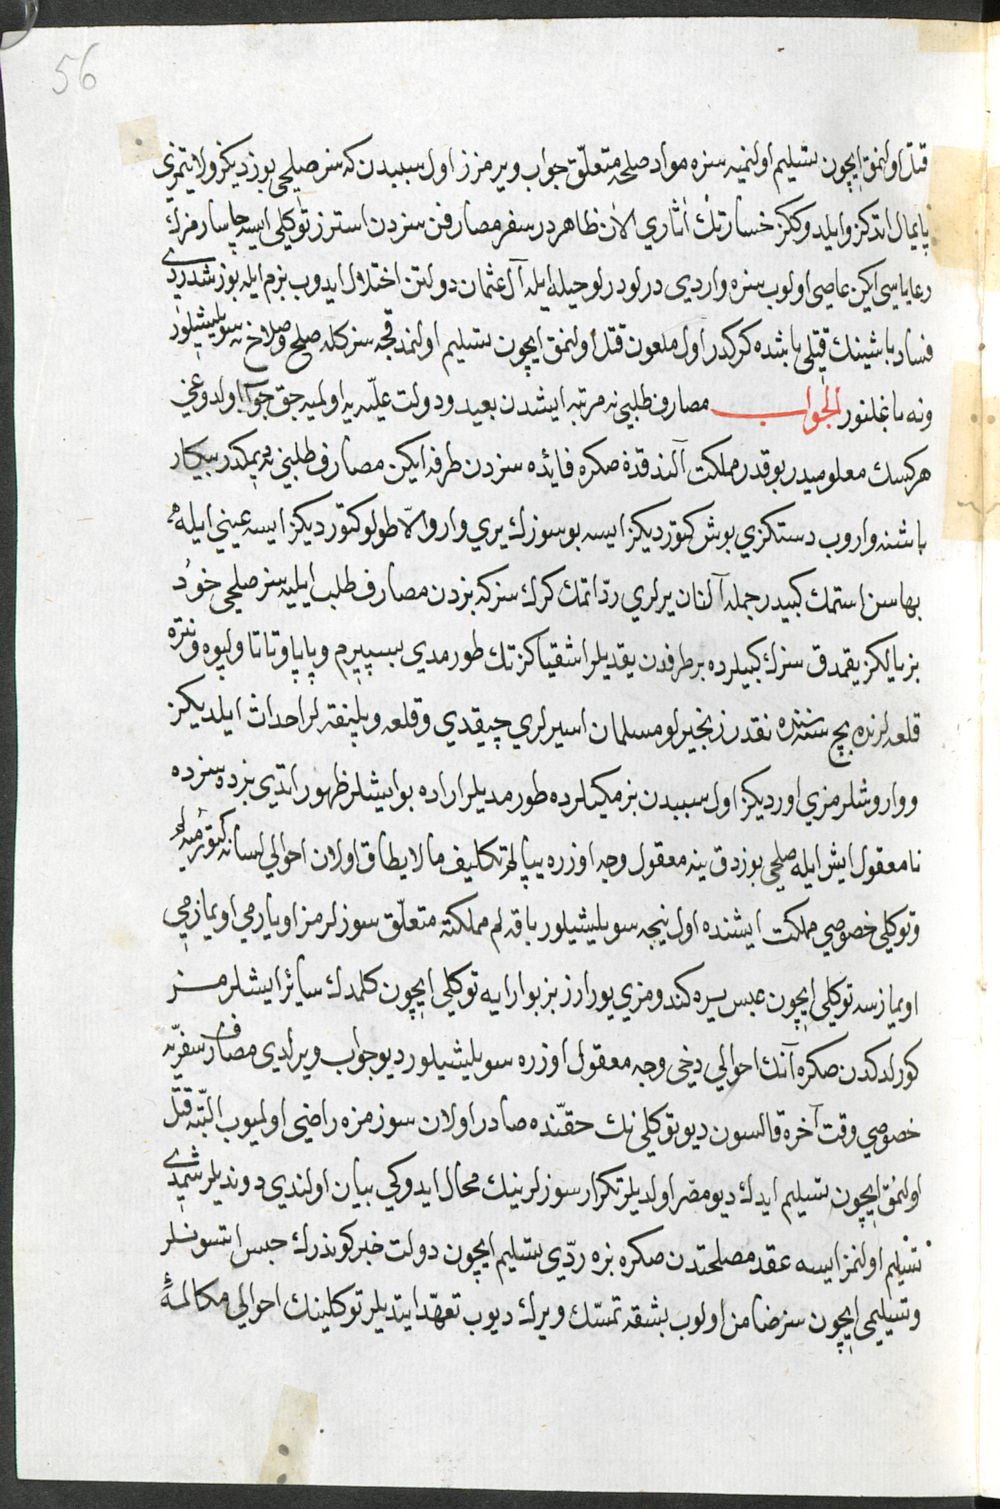 56
قتل اولنمق ایچون تسلیم اولنمیه سزه مواد صلحه متعلّق جواب ویرمزز اول سببدن که سز صلحی بوزدیکز ولایتمزی
پایمال اتدکز وایلدوککز خسارتك اثاری الآن ظاهردر سفر مصارفن سزدن استرز توکلی ایسه چاسارمزك
رعایاسی ایکن عاصی اولوب سزه واردی درلو درلو حیله ایله آل عثمان دولتن اختلال ایدوب بزم ایله بوزشدردی
فساد باشینك قیتلی باشده کرکدر اول ملعون قتل اولنمق ایچون تسلیم اولنمدقجه سزکله صلح وصلاح نه سویلیشیلور
ونه باغلنور الجواب مصارف طلبی نه مرتبه ایشدن بعید ودولت علّیه یه اولمیه جق جواب اولدوغنی
هرکسك معلومیدر بو قدر مملکت آلندقدن صکره فائده سزدن طرفه ایکن مصارف طلبی نه دیمکدر بیکار
باشنه واروب دستکزی بوش کتوردیکز ایسه بو سوزك یری وار والّا طولو کتوردیکز ایسه عینی ایله
بهاسن استمك کبیدر جمله آلنان یرلری ردّ اتمك کرك سز که بزدن مصارف طلب ایلیه سز صلحی خود
بز یالکز یقمدق سزك کبیلرده بر طرفدن یقدیلر اشقیاکز تك طورمدی بسپیرم وپاپا وتاتا ولپوه ونتره
قلعه لرنده بچ سنه سنده نقدر زنجیرلو مسلمان اسیرلری چیقدی وقلعه وپلنقه لر احداث ایلدیکز
ووا‌روشلرمزی اوردیکز اول سببدن بزمکیلرده طورمدیلر اراده بو ایشلر ظهور اتدی بزده سزده
نا معقول ایش ایله صلحی بوزدق ینه معقول وجه اوزره یپالم تکلیف ما لا یطاق اولان احوالی لسانه کتورمیه لم
وتوکلی خصوصی مملکت ایشنده اول نیجه سویلیشیلور باقه لم مملکته متعلّق سوزلرمز اویارمی اویمازمی
اویمازسه توکلی ایچون عبس یره کندومزی یورارز بز بو ارایه توکلی ایچون کلمدك سائر ایشلرمز
کورلدکدن صکره آنك احوالی دخی وجه معقول اوزره سویلیشیلور دیو جواب ویرلدی مصارف سفریّه
خصوصی وقت آخره قالسون دیو توکلی نك حقّنده صادر اولان سوزمزه راضی اولمیوب البتّه قتل
اولنمق ایچون تسلیم ایدك دیو مصّر اولدیلر تکرار سوزلرینك محال ایدوکی بیان اولندی دوندیلر شمدی
تسلیم اولنمز ایسه عقد مصلحتدن صکره بزه ردّی تسلیم ایچون دولت خبر کوندرك حبس اتسونلر
وتسلیمی ایچون سز ضامن اولوب بشقه تمسّك ویرك دیوب تعهّد ایتدیلر توکلینك احوالی مکالمه